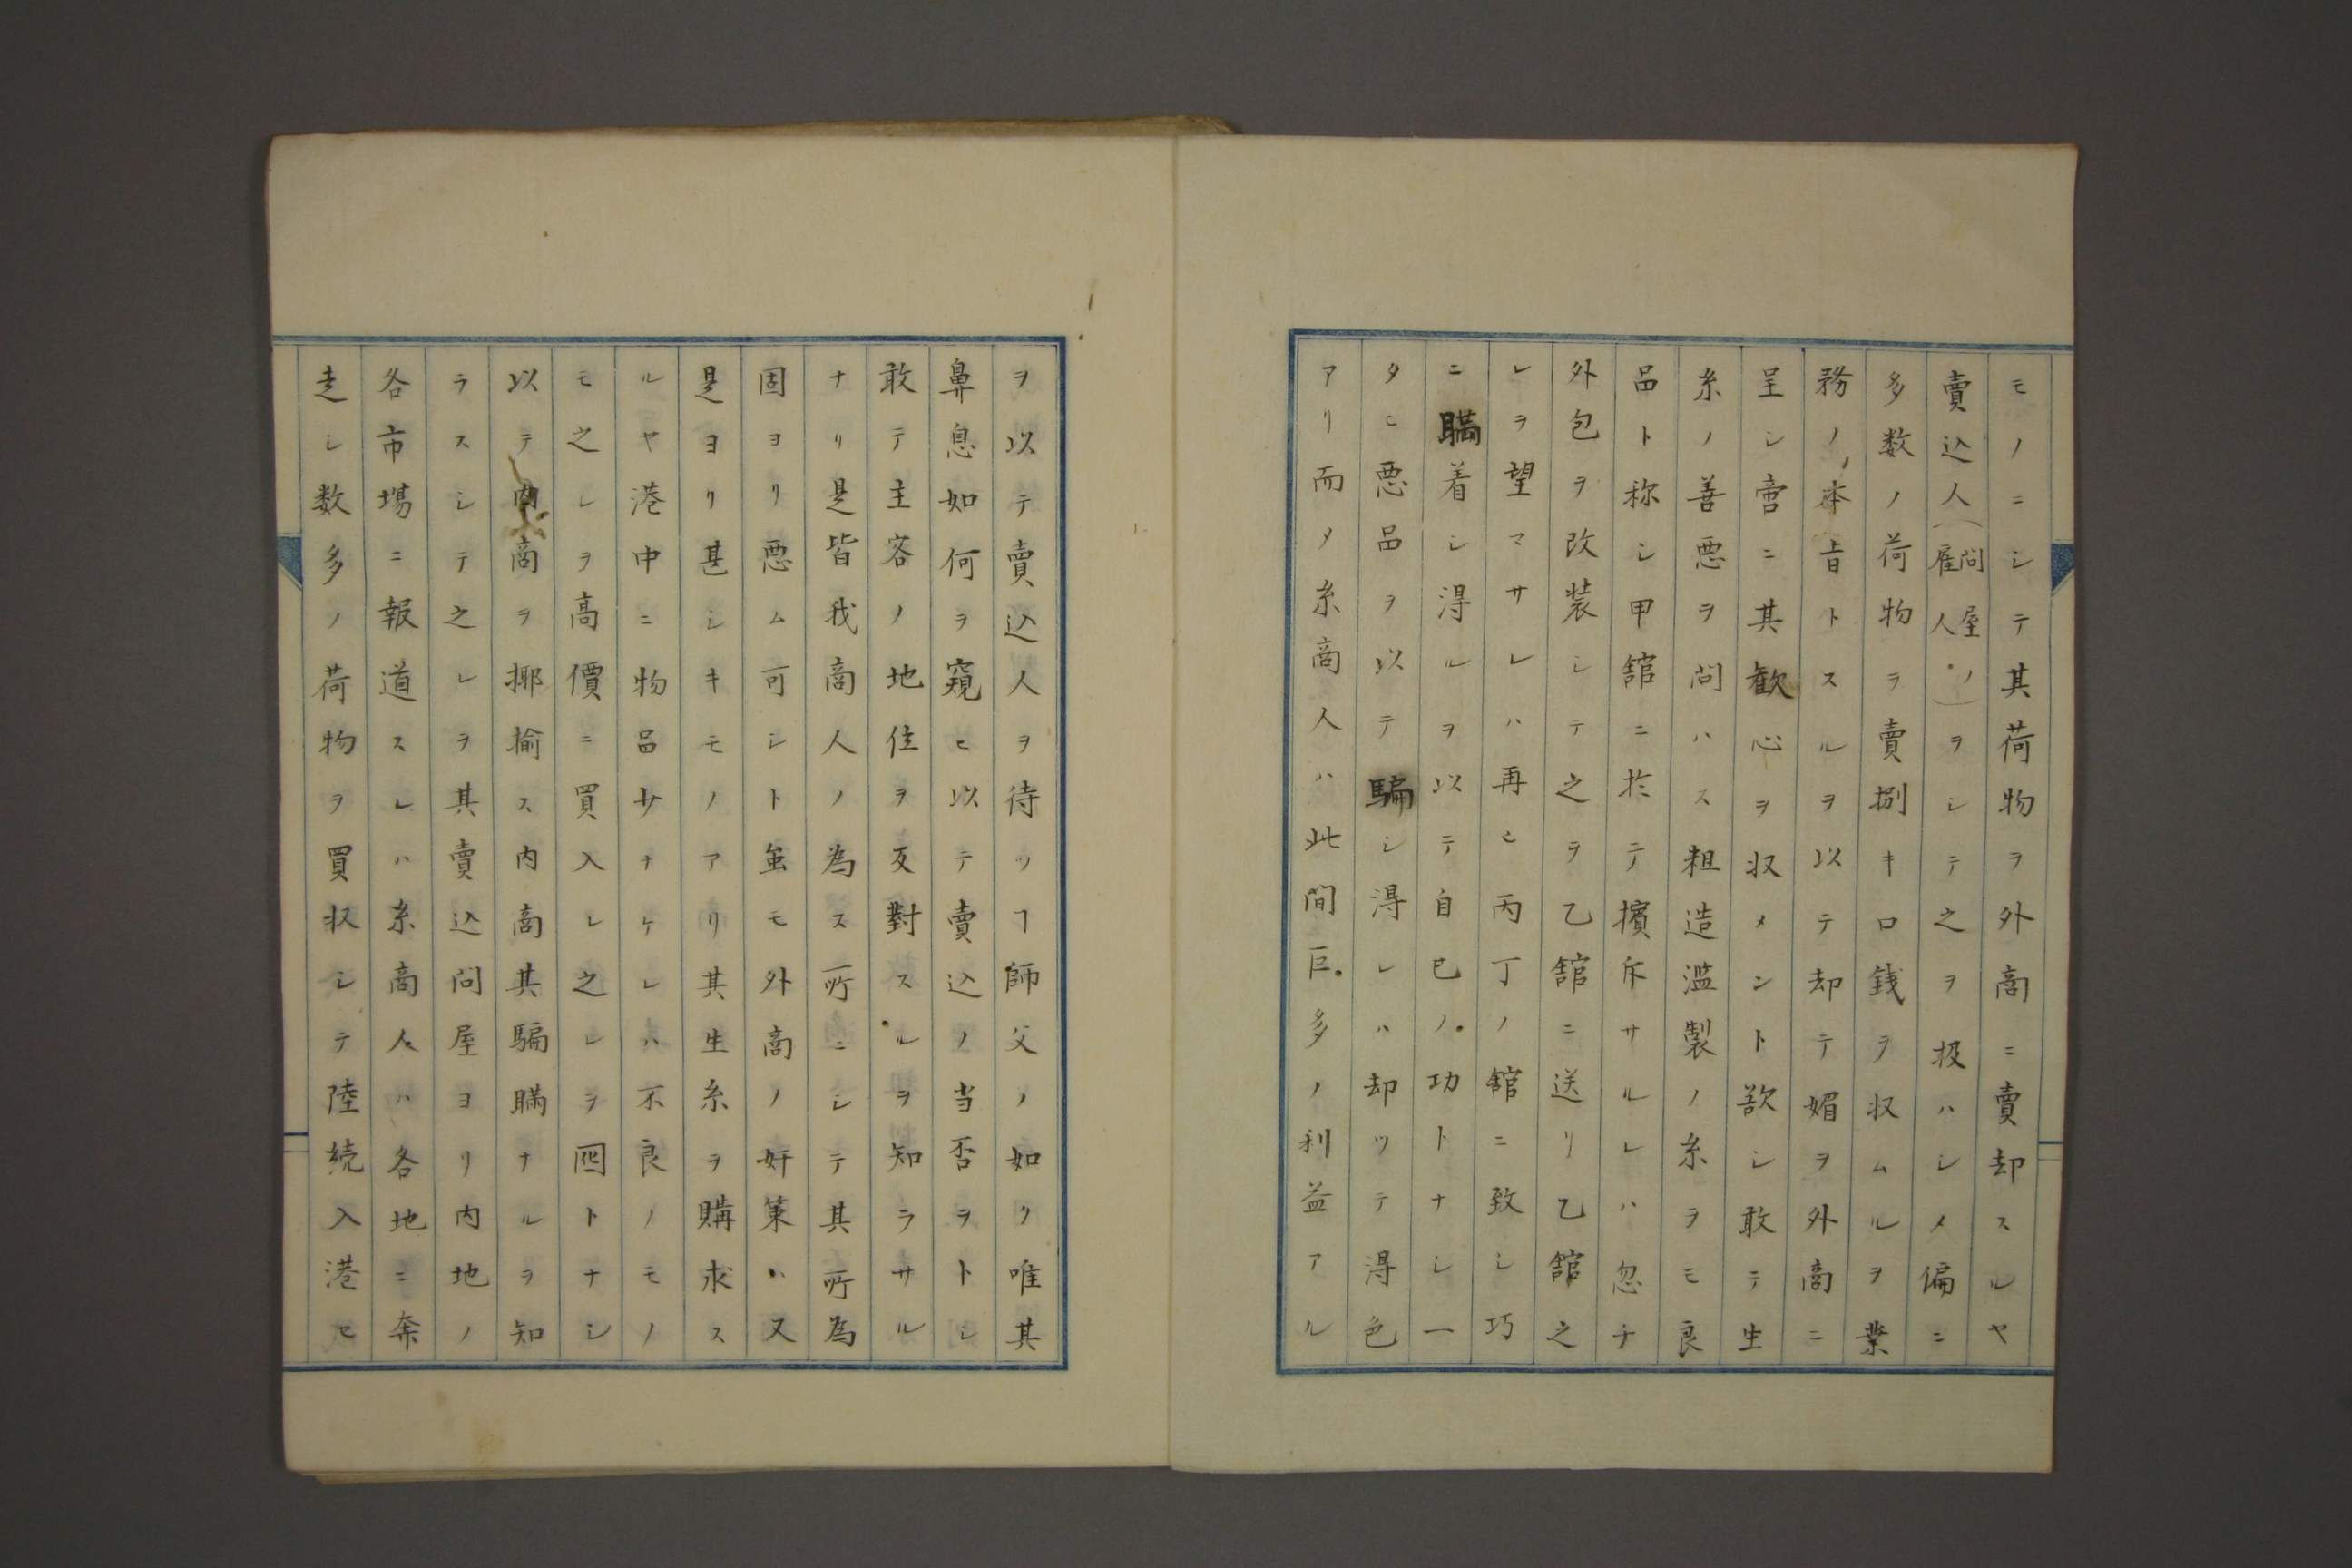 モノニシテ其荷物ヲ外商ニ賣却スルヤ
賣込人(問屋ノ雇人)ヲシテ之ヲ扱ハシメ偏ニ
多数ノ荷物ヲ賣捌キ口銭ヲ収ムルヲ業
務ノ本旨トスルヲ以テ却テ媚ヲ外商ニ
呈シ啻ニ其歓心ヲ収メント欲シ敢テ生
糸ノ善悪ヲ問ハス粗造濫製ノ糸ヲモ良
品ト称シ甲舘ニ於テ擯斥サルレハ忽チ
外包ヲ改装シテ之ヲ乙舘ニ送リ乙舘之
レヲ望マサレハ再ヒ丙丁ノ舘ニ致シ巧
ニ瞞着シ得ルヲ以テ自已ノ功トナシ一
タヒ悪品ヲ以テ騙シ得レハ却ツテ得色
アリ而メ糸商人ハ此間巨多ノ利益アル
ヲ以テ賣込人ヲ待ツヿ師父ノ如ク唯其
鼻息如何ヲ窺ヒ以テ賣込ノ当否ヲトシ
敢テ主客ノ地位ヲ反對スルヲ知ラサル
ナリ是皆我商人ノ為ス所ニシテ其所為
固ヨリ悪ム可シト虽モ外商ノ奸策ハ又
是ヨリ甚シキモノアリ其生糸ヲ購求ス
ルヤ港中ニ物品少ナケレハ不良ノモノ
モ之レヲ高價ニ買入レ之レヲ囮トナシ
以テ内商ヲ揶揄ス内商其騙瞞ナルヲ知
ラスシテ之レヲ其賣込問屋ヨリ内地ノ
各市場ニ報道スレハ糸商人ハ各地ニ奔
走シ数多ノ荷物ヲ買収シテ陸続入港セ